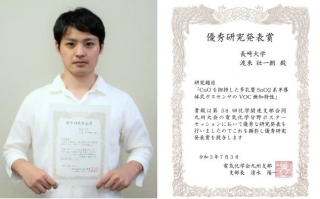 優秀研究発表賞
長崎大学
渡来 壮一朗 殿
研究題目
「CuOを担持した多孔質SnO2系半導
体式ガスセンサのVOC検知特性」
貴殿は第58回化学関連支部合同
九州大会の電気化学分野のポスター
セッションにおいて優秀な研究発表を
行いましたのでこれを賞し優秀研究
発表賞を授与します
令和3年7月3日
電気化学会九州支部
支部長 清水 陽一